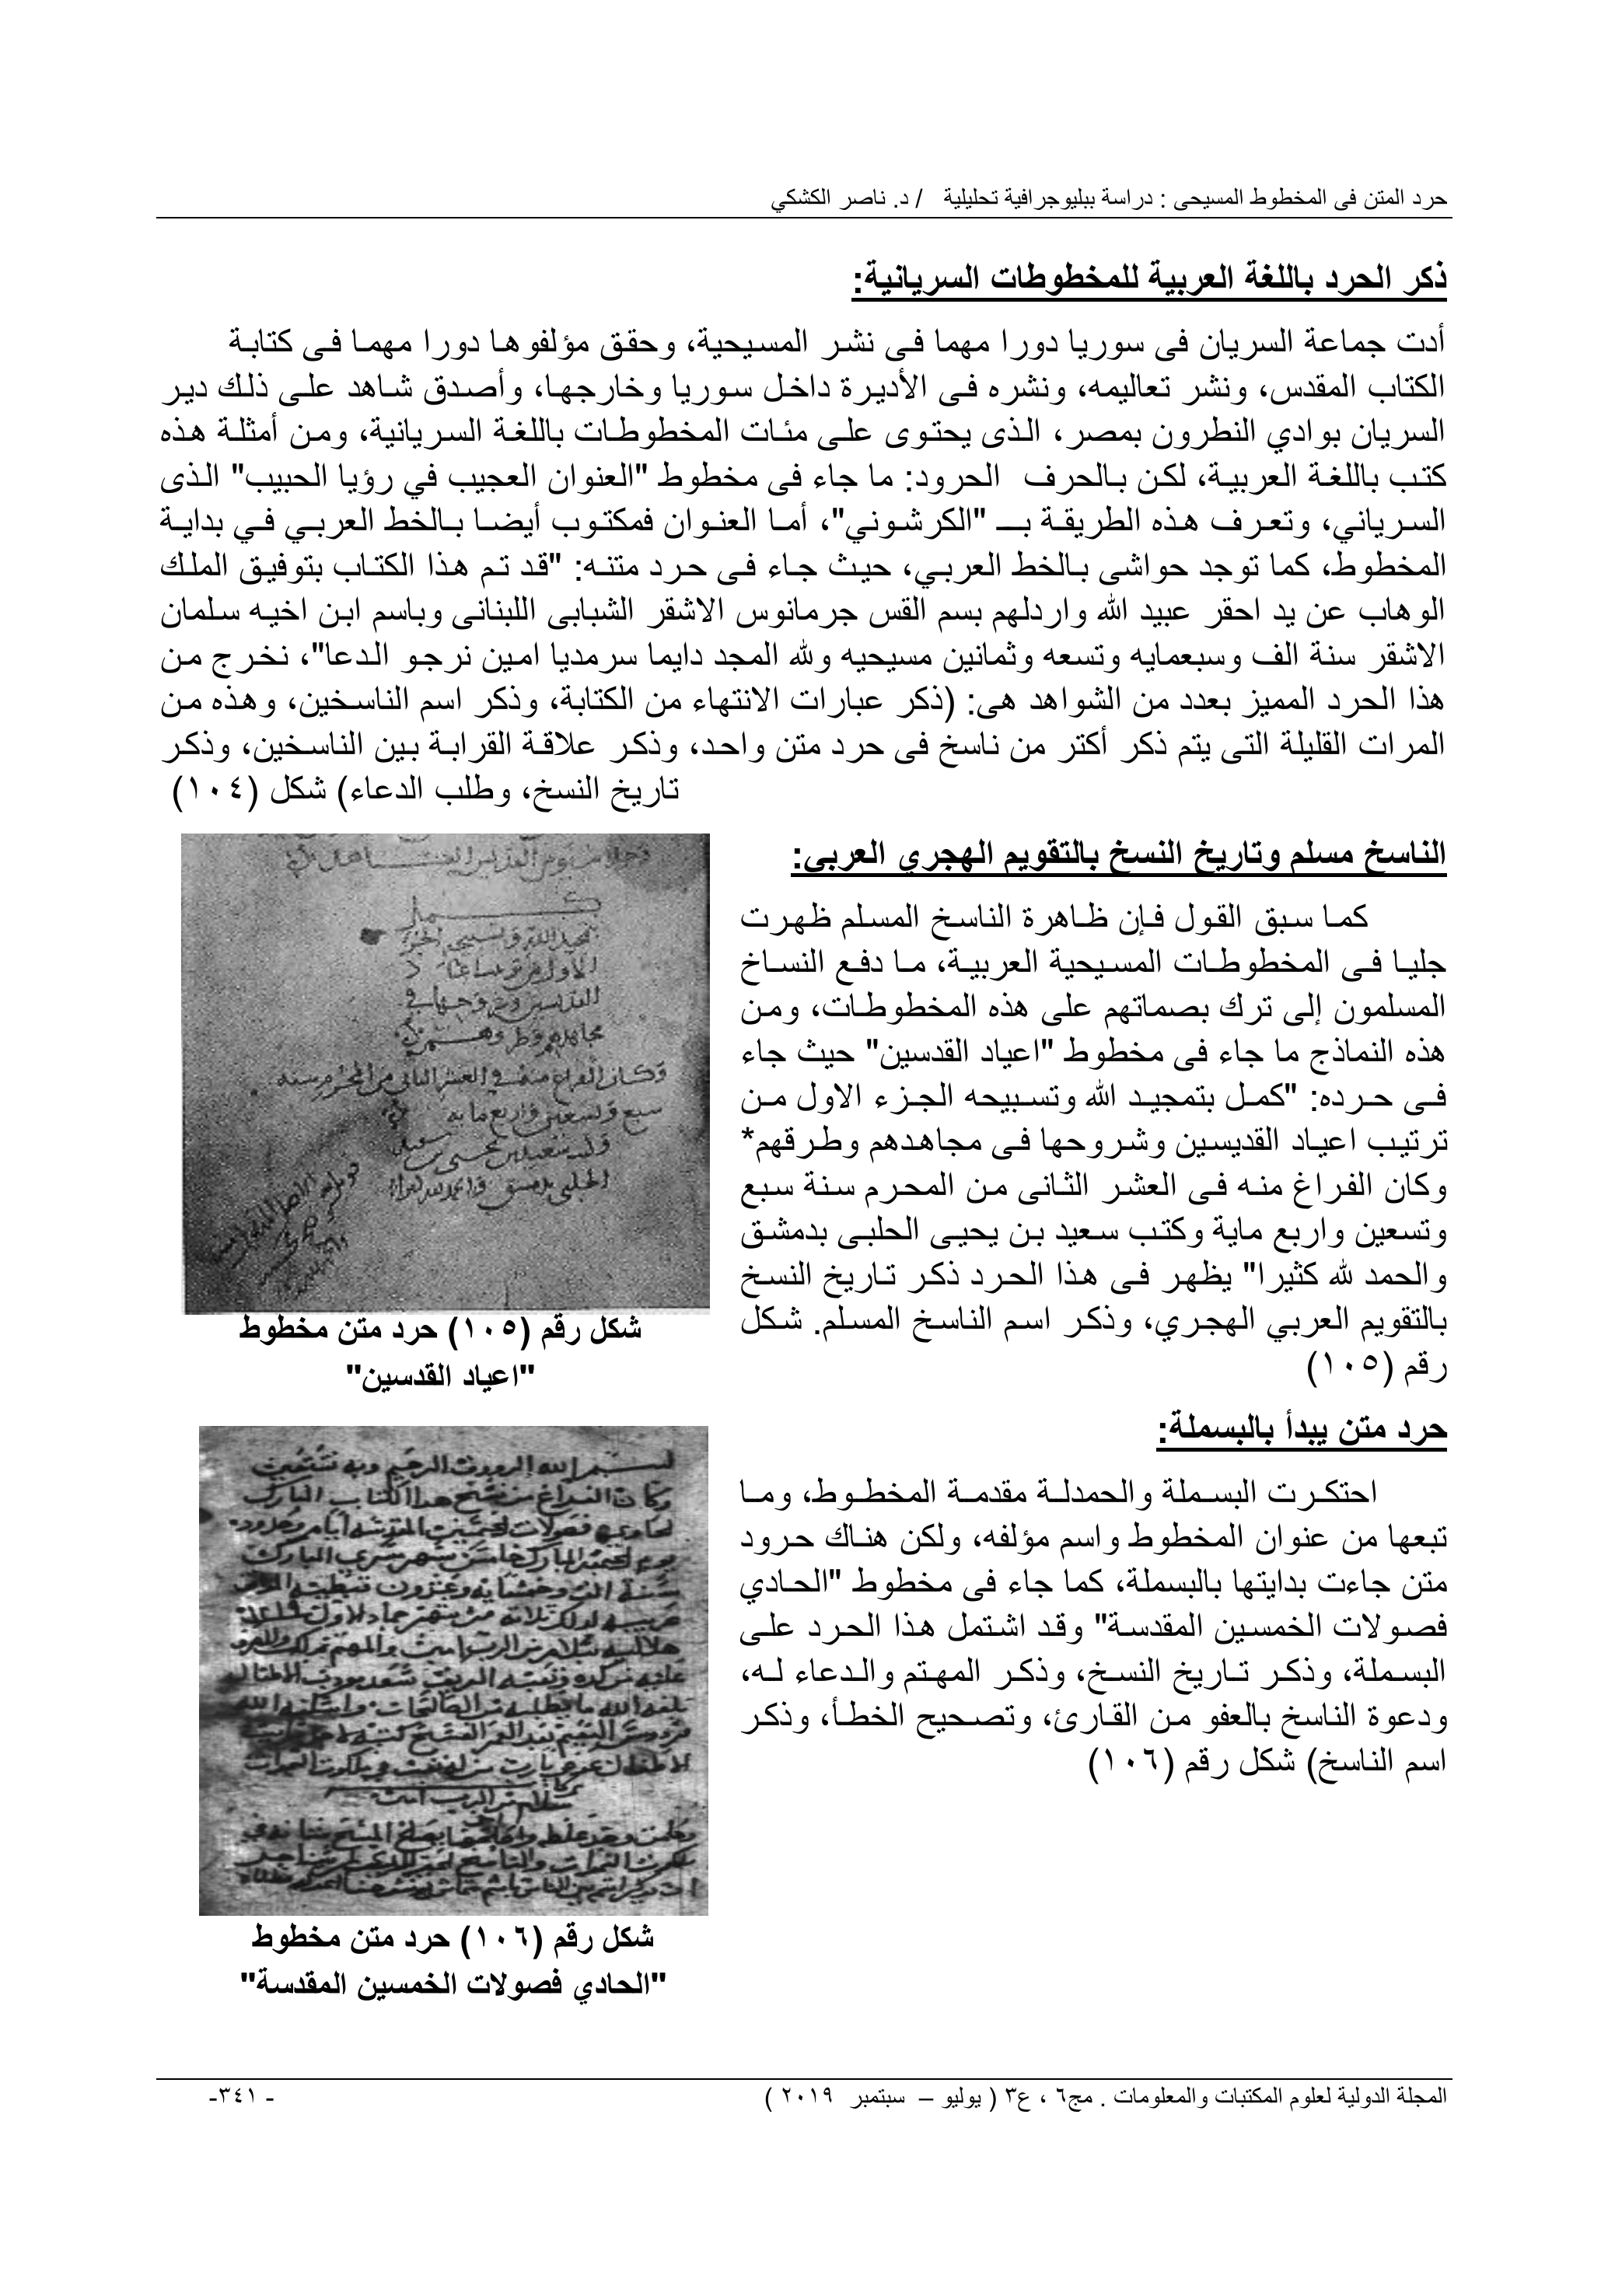 حرد المتن فى المخطوط المسيحى : دراسة ببليوجرافية تحليلية / د. ناصر الكشكي
ذكر الحرد باللغة العربية للمخطوطات السريانية:
أدت جماعة السريان فى سوريا دورا مهما فى نشر المسيحية، وحقق مؤلفوها دورا مهما فى كتابة
الكتاب المقدس، ونشر تعاليمه، ونشره فى الأديرة داخل سوريا وخارجها، وأصدق شاهد على ذلك دير
السريان بوادي النطرون بمصر، الذى يحتوى على مئات المخطوطات باللغة السريانية، ومن أمثلة هذه
كتب باللغة العربية، لكن بالحرف الحرود: ما جاء فى مخطوط "العنوان العجيب في رؤيا الحبيب" الذى
السرياني، وتعرف هذه الطريقة بـ "الكرشوني"، أما العنوان فمكتوب أيضا بالخط العربي في بداية
المخطوط، كما توجد حواشى بالخط العربي، حيث جاء فى حرد متنه: "قد تم هذا الكتاب بتوفيق الملك
الوهاب عن يد احقر عبيد الله واردلهم بسم القس جرمانوس الاشقر الشبابى اللبنانى وباسم ابن اخيه سلمان
الاشقر سنة الف وسبعمايه وتسعه وثمانين مسيحيه ولله المجد دايما سرمديا امين نرجو الدعا"، نخرج من
هذا الحرد المميز بعدد من الشواهد هى: (ذكر عبارات الانتهاء من الكتابة، وذكر اسم الناسخين، وهذه من
المرات القليلة التى يتم ذكر أكثر من ناسخ فى حرد متن واحد، وذكر علاقة القرابة بين الناسخين، وذكر
تاريخ النسخ، وطلب الدعاء) شكل (١٠٤)
الناسخ مسلم وتاريخ النسخ بالتقويم الهجري العربي:
كما سبق القول فإن ظاهرة الناسخ المسلم ظهرت
جليا فى المخطوطات المسيحية العربية، ما دفع النساخ
المسلمون إلى ترك بصماتهم على هذه المخطوطات، ومن
هذه النماذج ما جاء فى مخطوط "اعياد القدسين" حيث جاء
فى حرده: "كمل بتمجيد الله وتسبيحه الجزء الاول من
ترتيب اعياد القديسين وشروحها فى مجاهدهم وطرقهم*
وكان الفراغ منه فى العشر الثانى من المحرم سنة سبع
وتسعين واربع ماية وكتب سعيد بن يحيى الحلبى بدمشق
والحمد لله كثيرا" يظهر فى هذا الحرد ذكر تاريخ النسخ
بالتقويم العربي الهجري، وذكر اسم الناسخ المسلم. شكل
رقم (١٠٥)
شكل رقم (١٠٥) حرد متن مخطوط
"اعياد القدسين"
حرد متن يبدأ بالبسملة:
احتكرت البسملة والحمدلة مقدمة المخطوط، وما
تبعها من عنوان المخطوط واسم مؤلفه، ولكن هناك حرود
متن جاءت بدايتها بالبسملة، كما جاء فى مخطوط "الحادي
فصولات الخمسين المقدسة" وقد اشتمل هذا الحرد على
البسملة، وذكر تاريخ النسخ، وذكر المهتم والدعاء له،
ودعوة الناسخ بالعفو من القارئ، وتصحيح الخطأ، وذكر
اسم الناسخ) شكل رقم (١٠٦)
شكل رقم (١٠٦) حرد متن مخطوط
"الحادي فصولات الخمسين المقدسة"
المجلة الدولية لعلوم المكتبات والمعلومات . مج٦ ، ع٣ ( يوليو – سبتمبر ٢٠١٩ )
- ٣٤١-